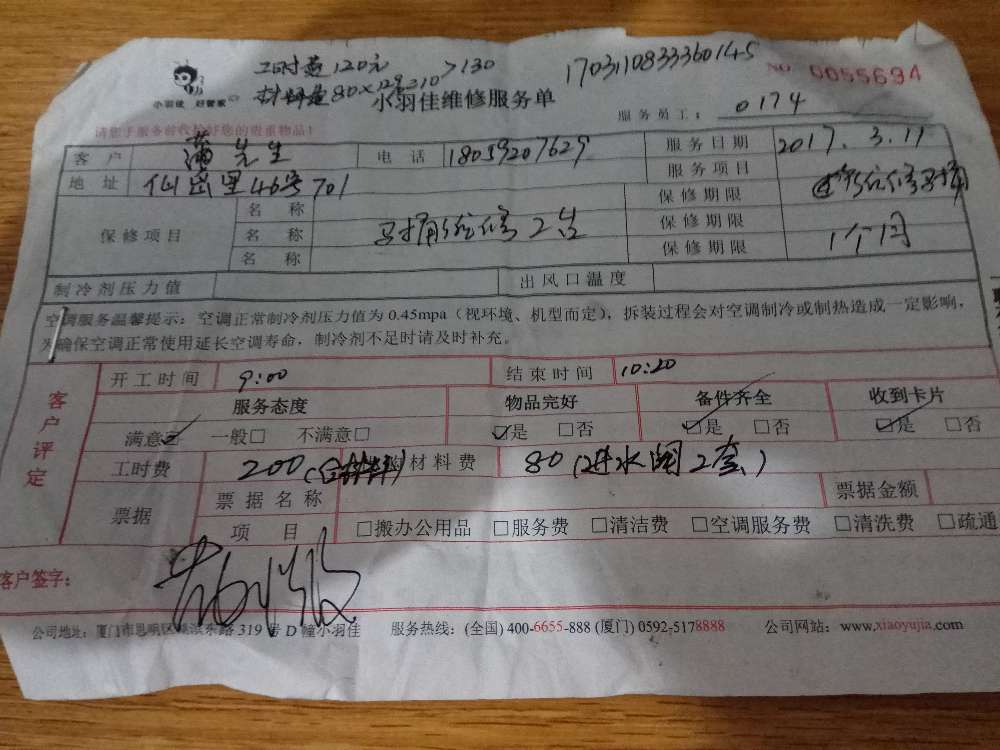 工时费120元 >130 1703110833360145
小羽佳 好管家 小羽佳维修服务单 NO 0055694
请您于服务前收拾好您的贵重物品! 服务员工: 0174
客户 蒲先生 电话 18059207629 服务日期 2017.3.11
服务项目
地址 仙岳里46号701 保修期限
保修项目 名称 马桶维修2台 保修期限 1个月
名称 保修期限
名称
制冷剂压力值 出风口温度
空调服务温馨提示:空调正常制冷剂压力值为0.45mpa(视环境、机型而定),拆装过程会对空调制冷或制热造成一定影响,
为确保空调正常使用延长空调寿命,制冷剂不足时请及时补充。
客户评定
开工时间 9:00 结束时间 10:20
服务态度 物品完好 备件齐全 收到卡片
满意☑ 一般□ 不满意□ ☑是 □否 ☑是 □否 ☑是 □否
工时费 200(含材料) 购材料费 80(进水阀2套)
票据 票据名称 票据金额
项目 □搬办公用品 □服务费 □清洁费 □空调服务费 □清洗费 □疏通
客户签字:
公司地址:厦门市思明区 东路319号D幢小羽佳 服务热线:(全国)400-6655-888(厦门)0592-5178888 公司网站:www.xiaoyujia.com